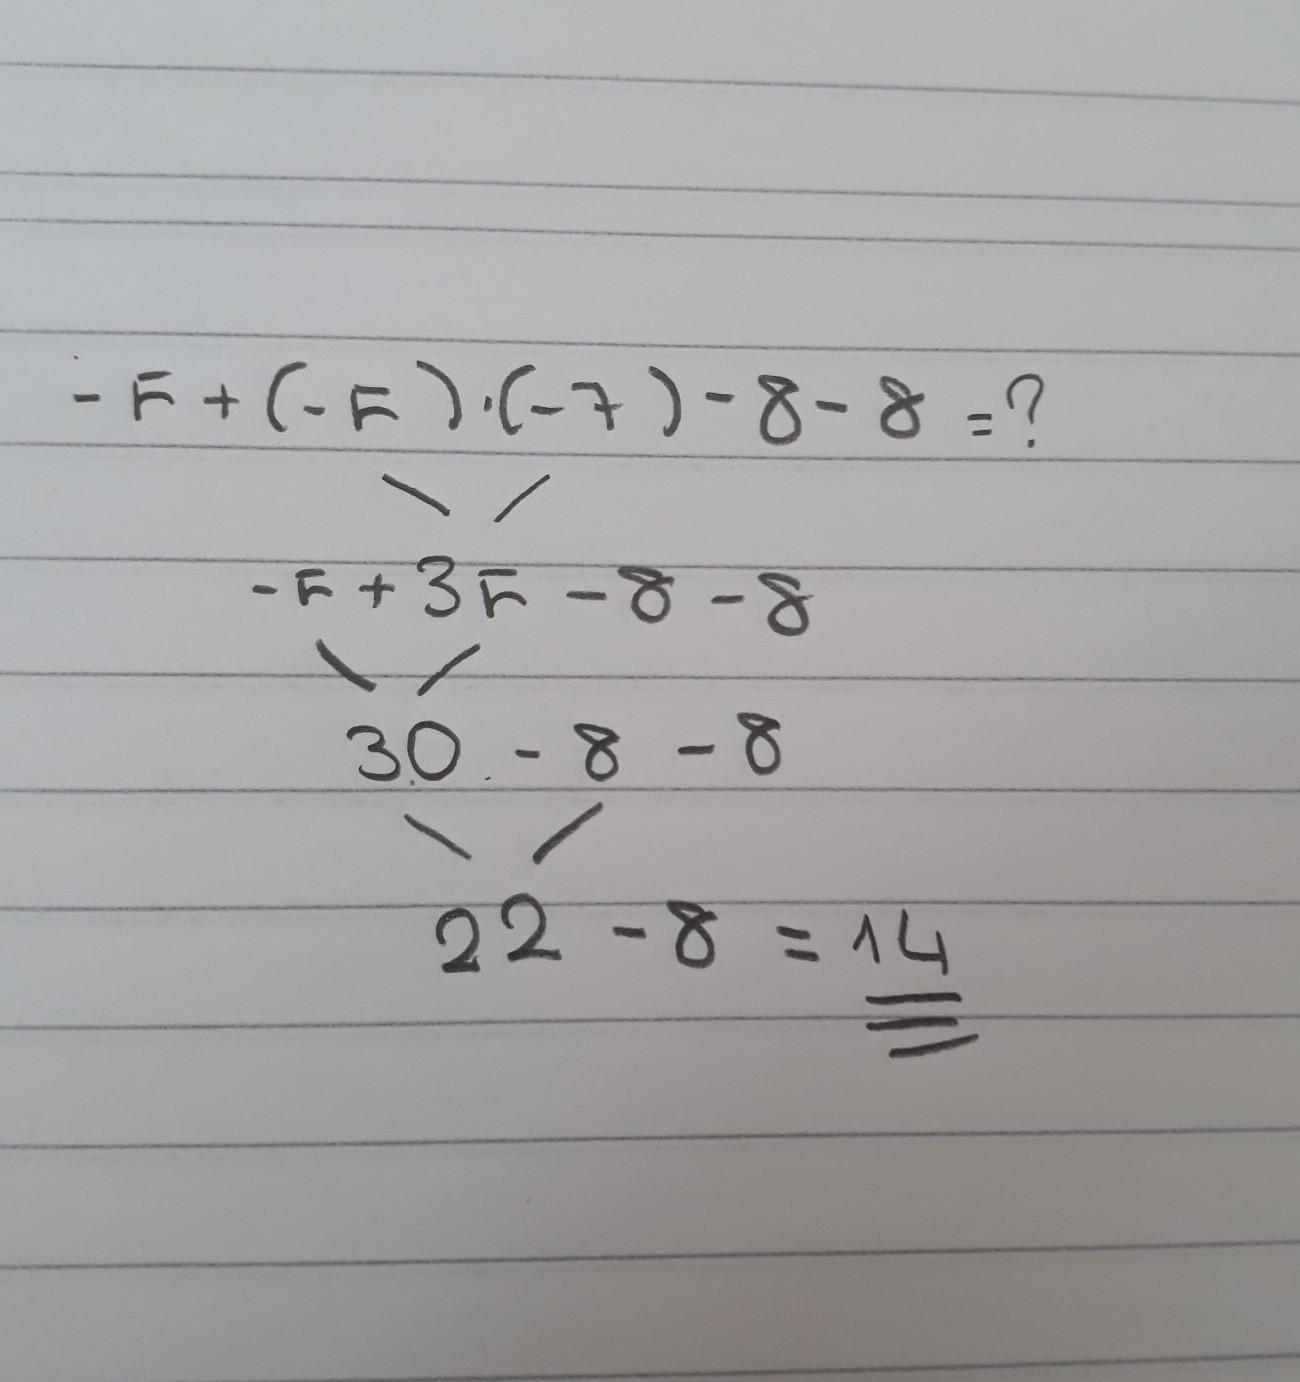 -5+(-5)·(-7)-8-8=?
-5+35-8-8
30-8-8
22-8=14